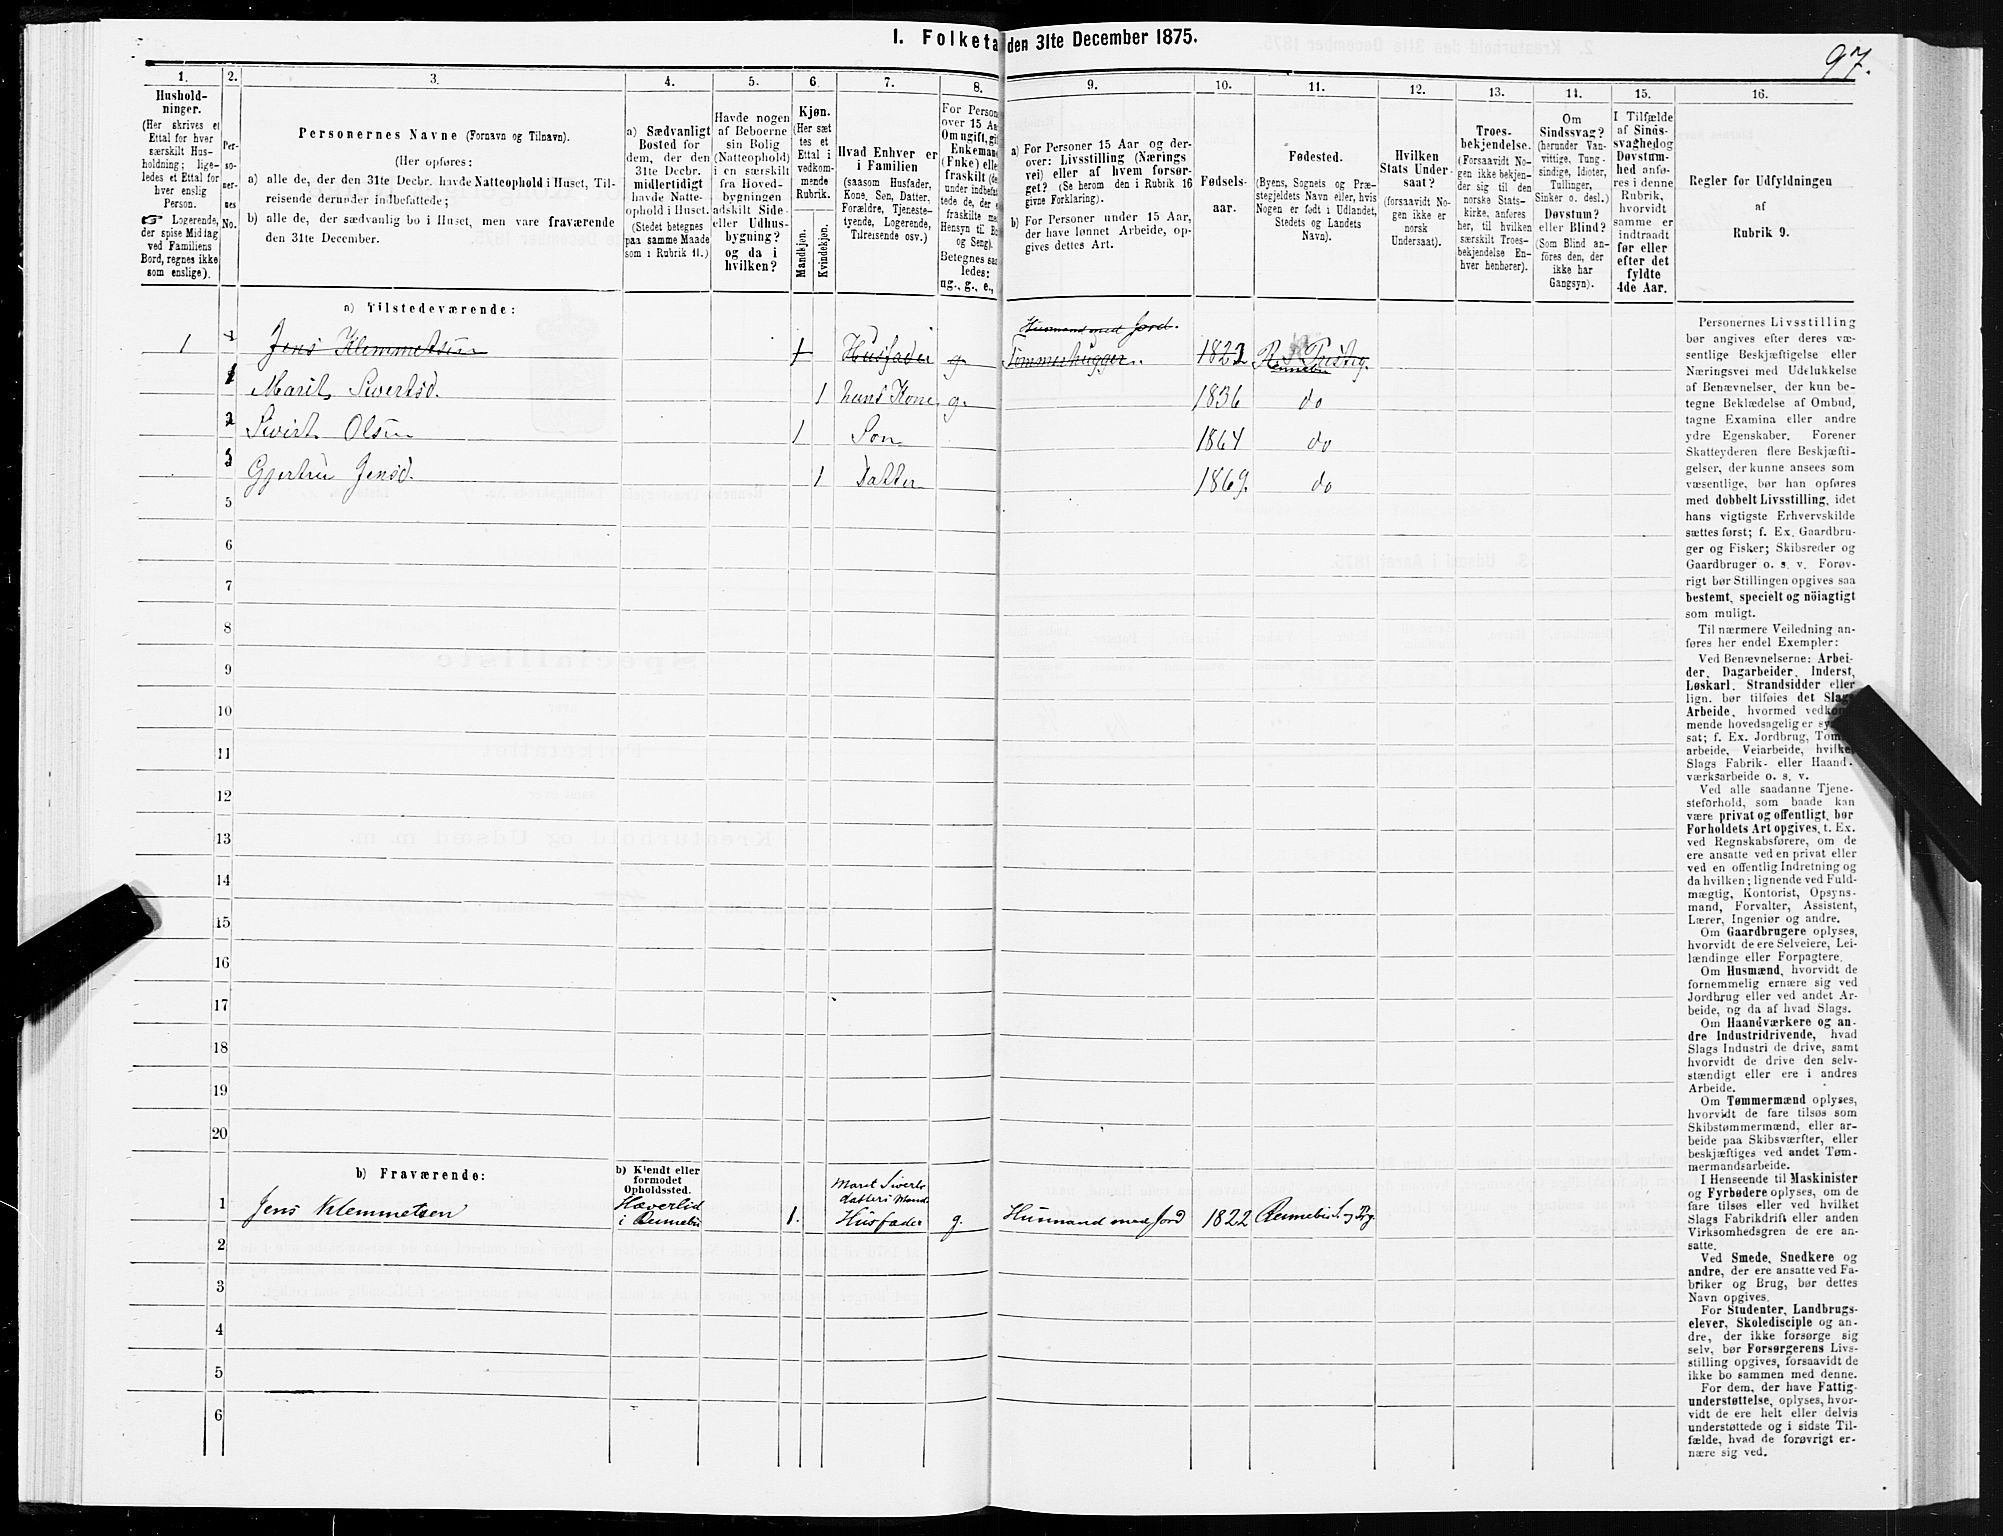 I. Folketa den 31te December 1875.
97.
1.
Hushold-
ninger.
(Her skrives et
Ettal for hver
særskilt Hus-
holdning; lige-
ledes et Ettal for
hver enslig
Person.
☞ Logerende,
der spise Middag
ved Familiens
Bord, regnes ikke
som enslige).
2.
Per-
so-
ner-
nes
No.
3.
Personernes Navne (Fornavn og Tilnavn).
(Her opføres:
a) alle de, der den 31te Decbr. havde Natteophold i Huset, Til-
reisende derunder indbefattede;
b) alle de, der sædvanlig bo i Huset, men vare fraværende
den 31te December.
4.
a) Sædvanligt
Bosted for
dem, der den
31te Decbr.
midlertidigt
havde Natte-
ophold i Huset.
(Stedet betegnes
paa samme Maade
som i Rubrik 11.)
5.
Havde nogen
af Beboerne
sin Bolig
(Natteophold)
i en særskilt
fra Hoved-
bygningen
adskilt Side-
eller Udhus-
bygning?
og da i
hvilken?
6.
Kjøn.
(Her sæt
tes et
Ettal i
vedkom-
mende
Rubrik.
Mandkjøn.
Kvindekjøn.
7.
Hvad Enhver er
i Familien
(saasom Husfader,
Kone, Søn, Datter,
Forældre, Tjeneste-
tyende, Logerende,
Tilreisende osv.)
8.
For Person
over 15 Aa
Om ugift, gif
Enkemand
(Fnke) elle
fraskilt (de
under indbefa
fraskilte me
Hensyn til Bo
og Seng).
Betegnes saa
ledes:
ug., g., e.,
9.
a) For Personer 15 Aar og der-
over: Livsstilling (Nærings
vei) eller af hvem forsør-
get? (Se herom den i Rubrik 16
givne Forklaring).
b) For Personer under 15 Aar,
der have lønnet Arbeide, op-
gives dettes Art.
10.
Fødsels-
aar.
11.
Fødested.
(Byens, Sognets og Præ-
stegjeldets Navn eller, hvis
Nogen er født i Udlandet,
Stedets og Landets
Navn).
12.
Hvilken
Stats Under-
saat?
(forsaavidt No-
gen ikke er
norsk
Undersaat).
13.
Troes-
bekjendelse.
(Forsaavidt No-
gen ikke bekjen-
der sig til den
norske Stats-
kirke, anføres
her, til hvilken
særskilt Troes-
bekjendelse En-
hver henhører).
14.
Om
Sindssvag?
(herunder Van-
vittige, Tung-
sindige, Idioter,
Tullinger,
Sinker o. desl.)
Døvstum?
eller Blind?
(Som Blind an-
føres den, der
ikke har
Gangsyn).
15.
I Tilfælde
af Sinds-
svaghed og
Døvstum-
hed anfø-
res i denne
Rubrik,
hvorvidt
samme er
indtraadt
før eller
efter det
fyldte
4de Aar.
16.
Regler for Udfyldningen
af
Rubrik 9.
a) Tilstedeværende:
Husmand med Jord.
1 1 Jens Klemmetsen 1 Husfader g. Tømmerhugger. 1822 Rennebu
1 Marit Sivertsd. 1 hans Kone g. 1836 do
2 Sivirt Olsen 1 Søn 1864 do
3 Gjertru Jensd. 1 Datter 1869. do
5
6
7
8
9
10
11
12
13
14
15
16
17
18
19
20
b) Fraværende:
b) Kjendt eller
formodet
Opholdssted.
Maret Siverts
datters Mand
1 Jens Klemmetsen Hæverlid
i Rennebu 1. Husfader g. Husmand med Jord 1822 Rennebu S. og Prg.
2
3
4
5
6
Personernes Livsstilling
bør angives efter deres væ-
sentlige Beskjæftigelse eller
Næringsvei med Udelukkelse
af Benævnelser, der kun be-
tegne Beklædelse af Ombud,
tagne Examina eller andre
ydre Egenskaber. Forener
Skatteyderen flere Beskjæfti-
gelser, der kunne ansees som
væsentlige, bør han opføres
med dobbelt Livsstilling, idet
hans vigtigste Erhvervskilde
sættes først; f. Ex. Gaardbru-
ger og Fisker; Skibsreder og
Gaardbruger o. s. v. Forøv-
rigt bør Stillingen opgives saa
bestemt, specielt og nöiagtigt
som muligt.
Til nærmere Veiledning an-
føres her endel Exempler:
Ved Benævnelserne: Arbei-
der, Dagarbeider, Inderst,
Løskarl, Strandsidder eller
lign. bør tilføies det Slags
Arbeide, hvormed vedkom-
mende hovedsagelig er sys-
sat; f. Ex. Jordbrug, Tømmer-
arbeide, Veiarbeide, hvilket
Slags Fabrik- eller Haand-
værksarbeide o. s. v.
Ved alle saadanne Tjene-
steforhold, som baade kan
være privat og offentligt, bør
Forholdets Art opgives, t. Ex.
ved Regnskabsførere, om de
ere ansatte ved en privat eller
ved en offentlig Indretning og
da hvilken; lignende ved Fuld-
mægtig, Kontorist, Opsyns-
mand, Forvalter, Assistent,
Lærer, Ingeniør og andre.
Om Gaardbrugere oplyses,
hvorvidt de ere Selveiere, Lei-
lændinge eller Forpagtere.
Om Husmænd, hvorvidt de
fornemmelig ernære sig ved
Jordbrug eller ved andet Ar-
beide, og da af hvad Slags.
Om Haandværkere og an-
dre Industridrivende, hvad
Slags Industri de drive, samt
hvorvidt de drive den selv-
stændigt eller ere i andres
Arbeide.
Om Tømmermænd oplyses,
hvorvidt de fare tilsøs som
Skibstømmermænd, eller ar-
beide paa Skibsværfter, eller
beskjæftiges ved andet Tøm-
mermandsarbeide.
I Henseende til Maskinister
og Fyrbødere oplyses, om de
fare tilsøs eller ved hvilket
Slags Fabrikdrift eller anden
Virksomhedsgren de ere an-
satte.
Ved Smede, Snedkere og
andre, der ere ansatte ved Fa-
briker og Brug, bør dettes
Navn opgives.
For Studenter, Landbrugs-
elever, Skoledisciple og an-
dre, der ikke forsørge sig
selv, bør Forsørgerens Livs-
stilling opgives, forsaavidt de
ikke bo sammen med denne.
For dem, der have Fattig-
understøttelse, oplyses, hvor-
vidt de ere helt eller delvis
understøttede og i sidste Til-
fælde, hvad de forøvrigt er-
nære sig ved.